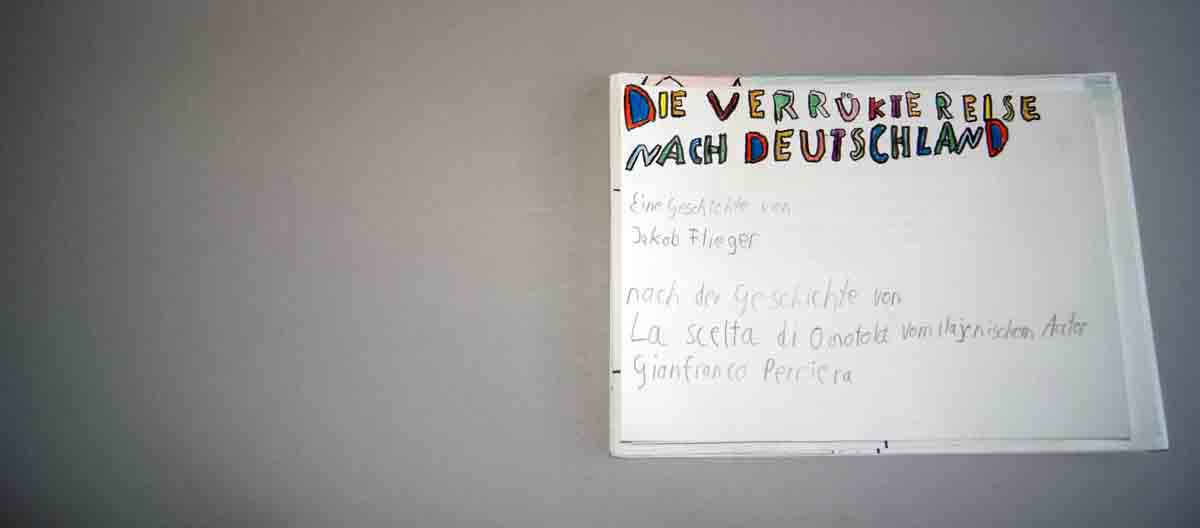 DIE VERRÜKTE REISE
NACH DEUTSCHLAND
Eine Geschichte von
Jakob Flieger
nach der Geschichte von
La scelta di Omotola vom itajenischem Autor
Gianfranco Perriera